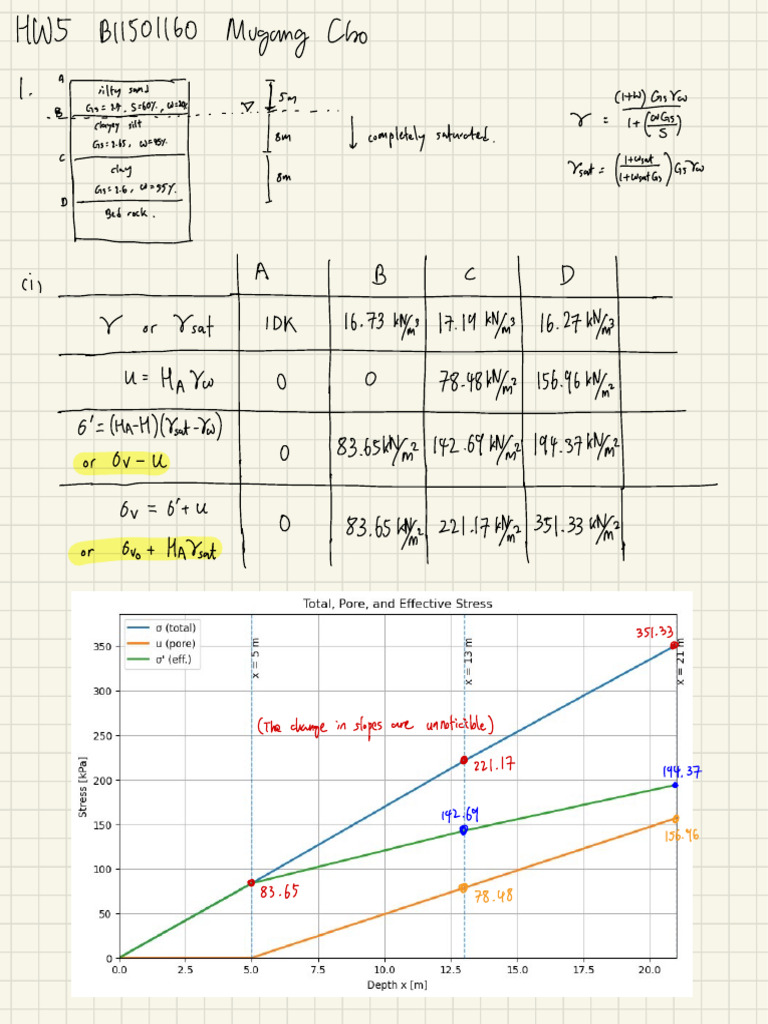 HW5 B11501160 Mugang Cho
1.
A
silty sand
Gs = 2.7, S=60%,
5m
B
clayey silt
Gs=2.65, w=45%
8m
↓ completely saturated.
C
clay
Gs=2.6, w=55%
8m
D
Bed rock.
γ = (1+w) Gs γw / 1 + (wGs/S)
γsat = (1+wsat / 1+wsatGs) Gs γw
(i)
A B C D
γ or γsat IDK 16.73 kN/m³ 17.19 kN/m³ 16.27 kN/m³
u = HA γw 0 0 78.48 kN/m² 156.96 kN/m²
σ' = (HA-H)(γsat-γw)
or σv - u 0 83.65 kN/m² 142.69 kN/m² 194.37 kN/m²
σv = σ' + u
or σv₀ + HA γsat 0 83.65 kN/m² 221.17 kN/m² 351.33 kN/m²
Total, Pore, and Effective Stress
σ (total)
u (pore)
σ' (eff.)
x = 5 m
x = 13 m
x = 21 m
351.33
(The change in slopes are unnoticible)
221.17
194.37
142.69
156.96
83.65
78.48
Stress [kPa]
350
300
250
200
150
100
50
0
0.0 2.5 5.0 7.5 10.0 12.5 15.0 17.5 20.0
Depth x [m]